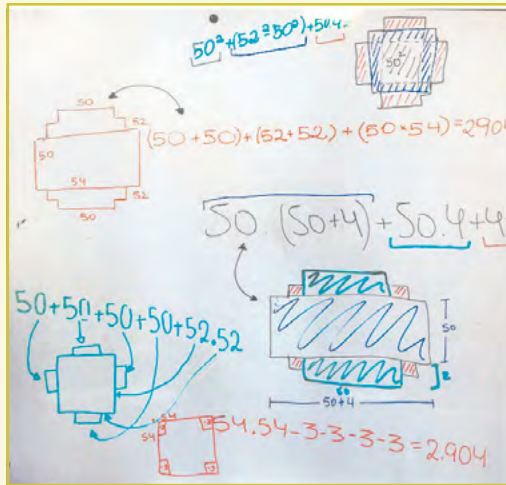 50²+(52²50²)+50.4
50²
50
52
50
54
52
50
(50+50)+(52+52)+(50×54)=2904
50 (50+4)+50.4+4
50
2
50
50+4
50+50+50+50+52.52
54
54
54.54-3-3-3-3=2.904